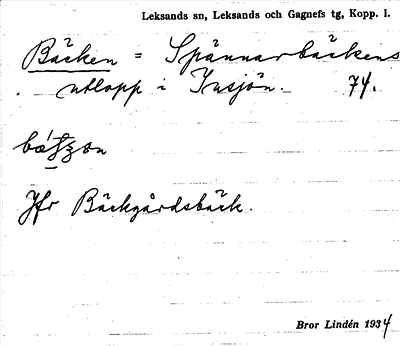 Leksands sn, Leksands och Gagnefs tg, Kopp. l.
Bäcken = Spännarbäckens
utlopp i Insjön. 74.
Jfr Bäckgårdsbäck.
Bror Lindén 1934